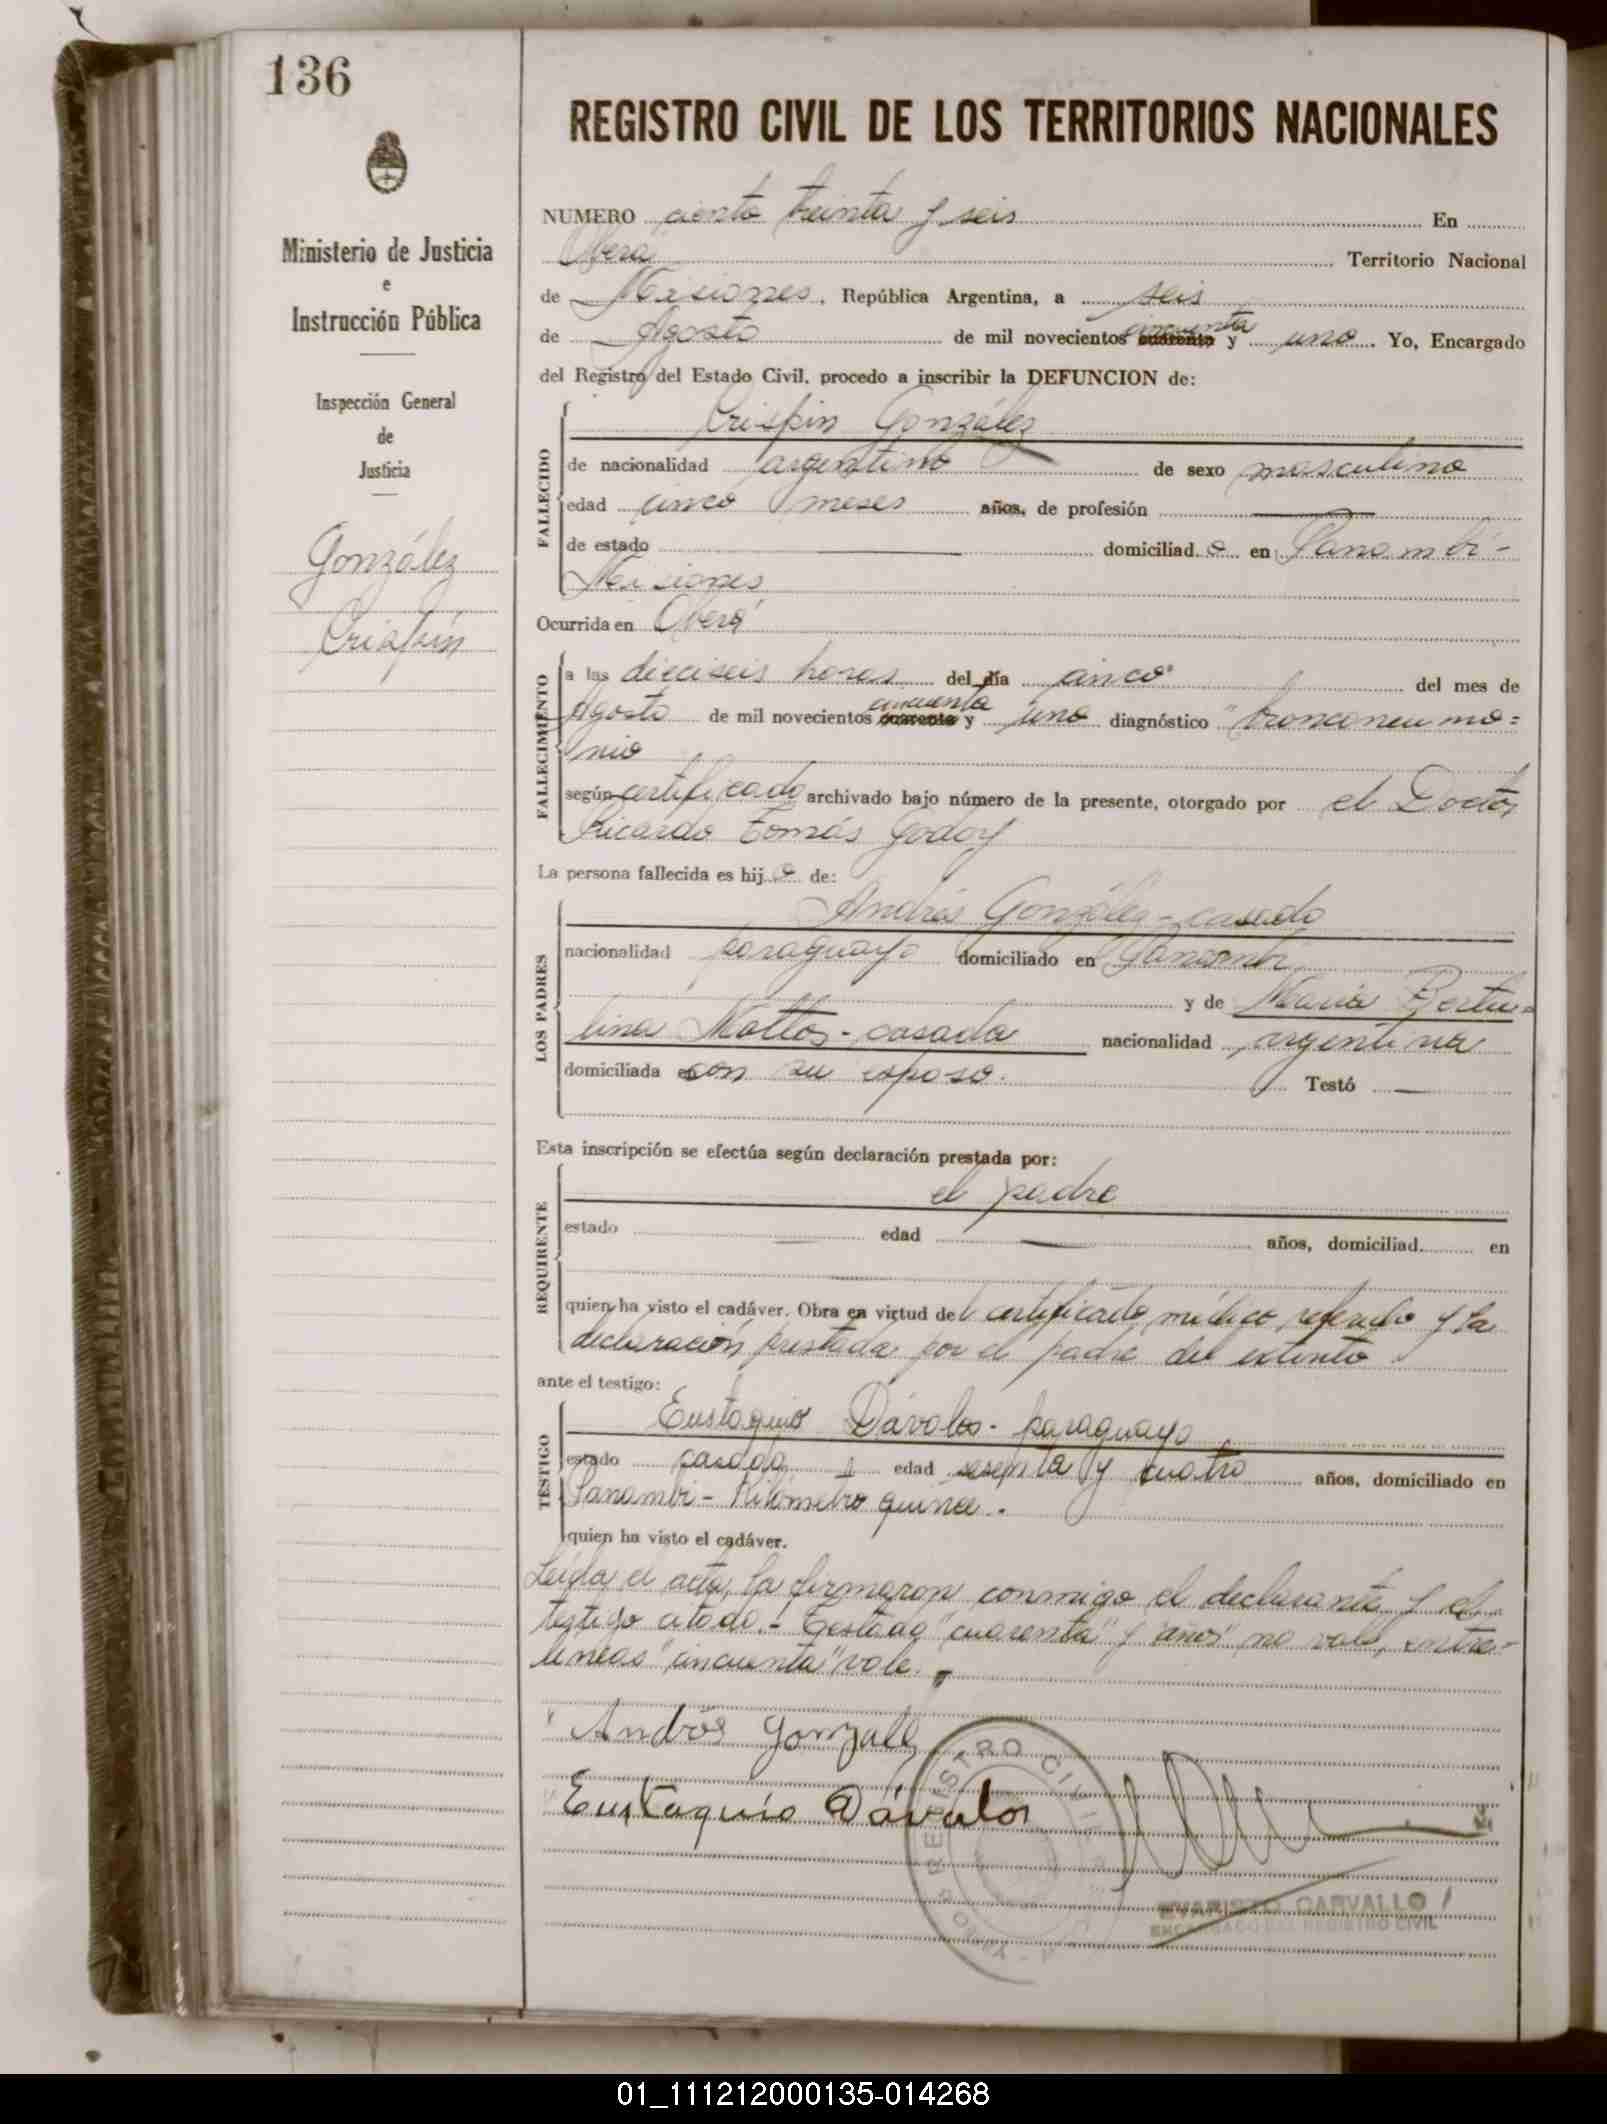 136
REGISTRO CIVIL DE LOS TERRITORIOS NACIONALES
Ministerio de Justicia
e
Instrucción Pública
Inspección General
de
Justicia
González
Crispín
NUMERO ciento treinta y seis En
Oberá Territorio Nacional
de Misiones, República Argentina, a seis
de Agosto de mil novecientos cincuenta cuarenta y uno. Yo, Encargado
del Registro del Estado Civil, procedo a inscribir la DEFUNCION de:
FALLECIDO
Crispín González
de nacionalidad argentino de sexo masculino
edad cinco meses años, de profesión
de estado domiciliad o en Panambí-
Misiones
Ocurrida en Oberá
FALLECIMIENTO
a las dieciseis horas del día cinco del mes de
Agosto de mil novecientos cincuenta cuarenta y uno diagnóstico "bronconeumo=
nia
según certificado archivado bajo número de la presente, otorgado por el Doctor
Ricardo Tomás Godoy
La persona fallecida es hij o de:
LOS PADRES
Andrés González - casado
nacionalidad paraguayo domiciliado en Panambí
y de María Bertu=
lina Mattos - casada nacionalidad argentina
domiciliada en con su esposo. Testó —
Esta inscripción se efectúa según declaración prestada por:
REQUIRENTE
el padre
estado — edad — años, domiciliad en
quien ha visto el cadáver. Obra en virtud del certificado médico referido y la
declaración prestada por el padre del extinto
ante el testigo:
TESTIGO
Eustaquio Dávalos - paraguayo
estado casado edad sesenta y cuatro años, domiciliado en
Panambí - Kilómetro quince.
quien ha visto el cadáver.
Leída el acta, la firmaron conmigo el declarante y el
testigo citado.- Testado "cuarenta" y "años" no vale, entre-
lineas "cincuenta" vale.
Andrés Gonzalez
Eustaquio Dávalos
REGISTRO CIVIL
EVARISTO CARVALLO
ENCARGADO DEL REGISTRO CIVIL
01_111212000135-014268